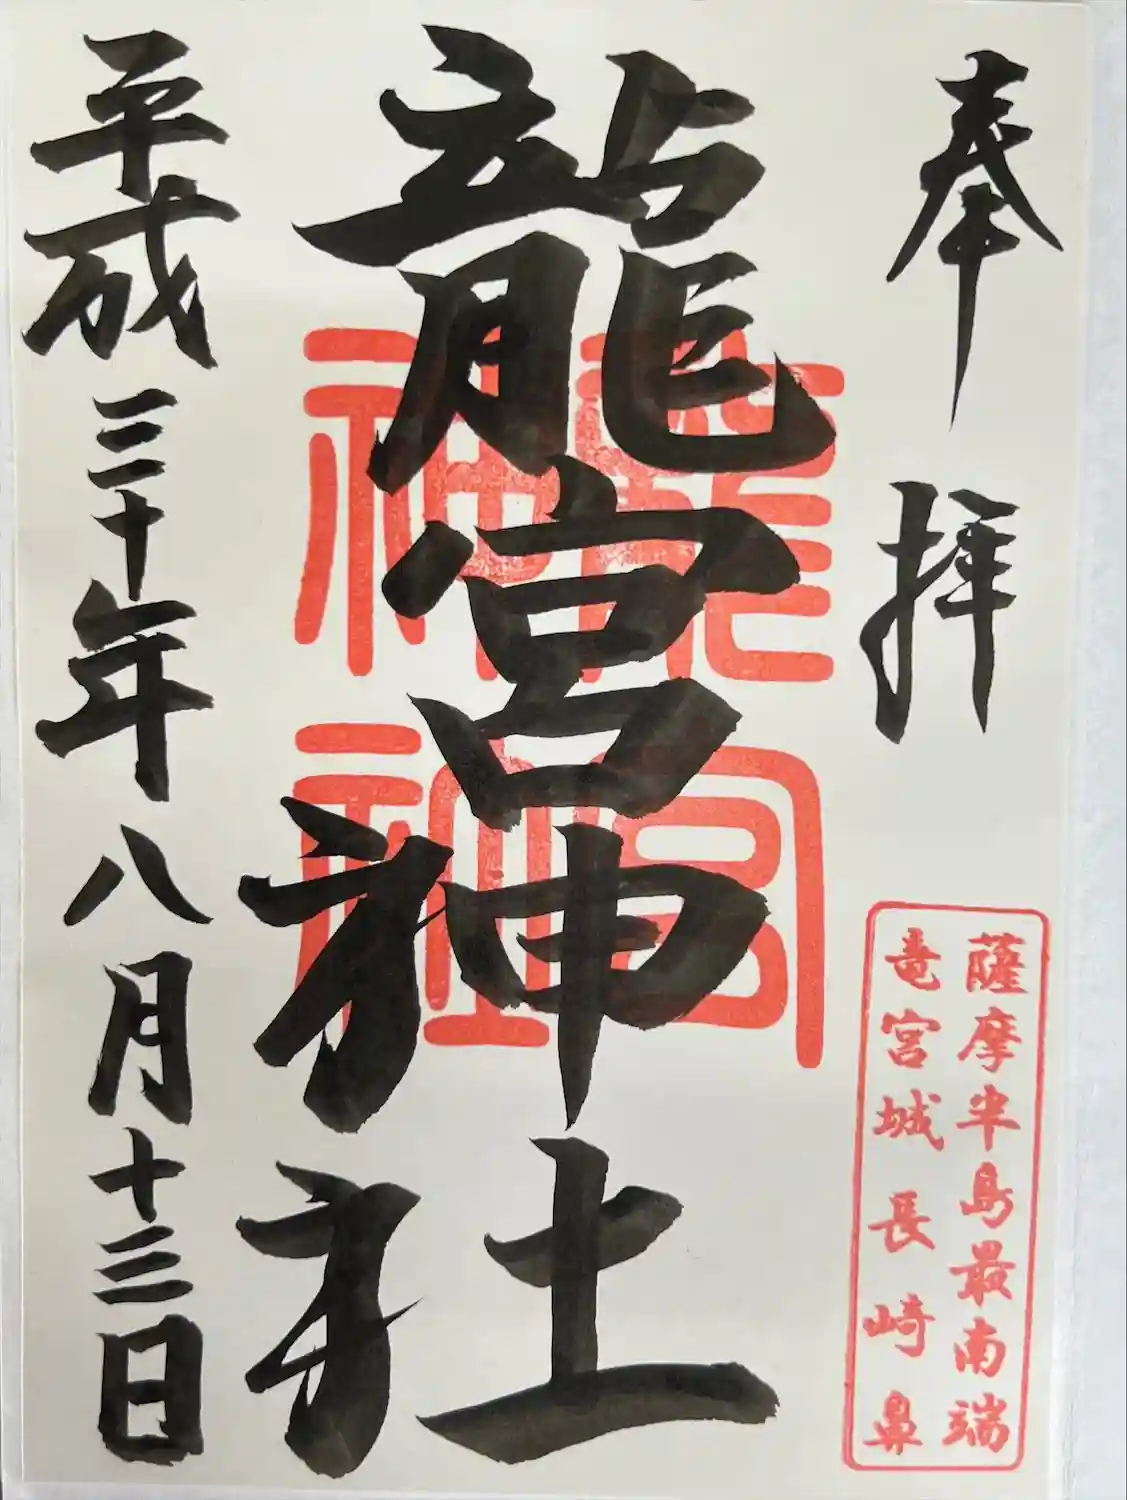 奉拝
薩摩半島最南端
竜宮城長崎鼻
龍宮神社
龍宮
神社
平成三十年八月十三日